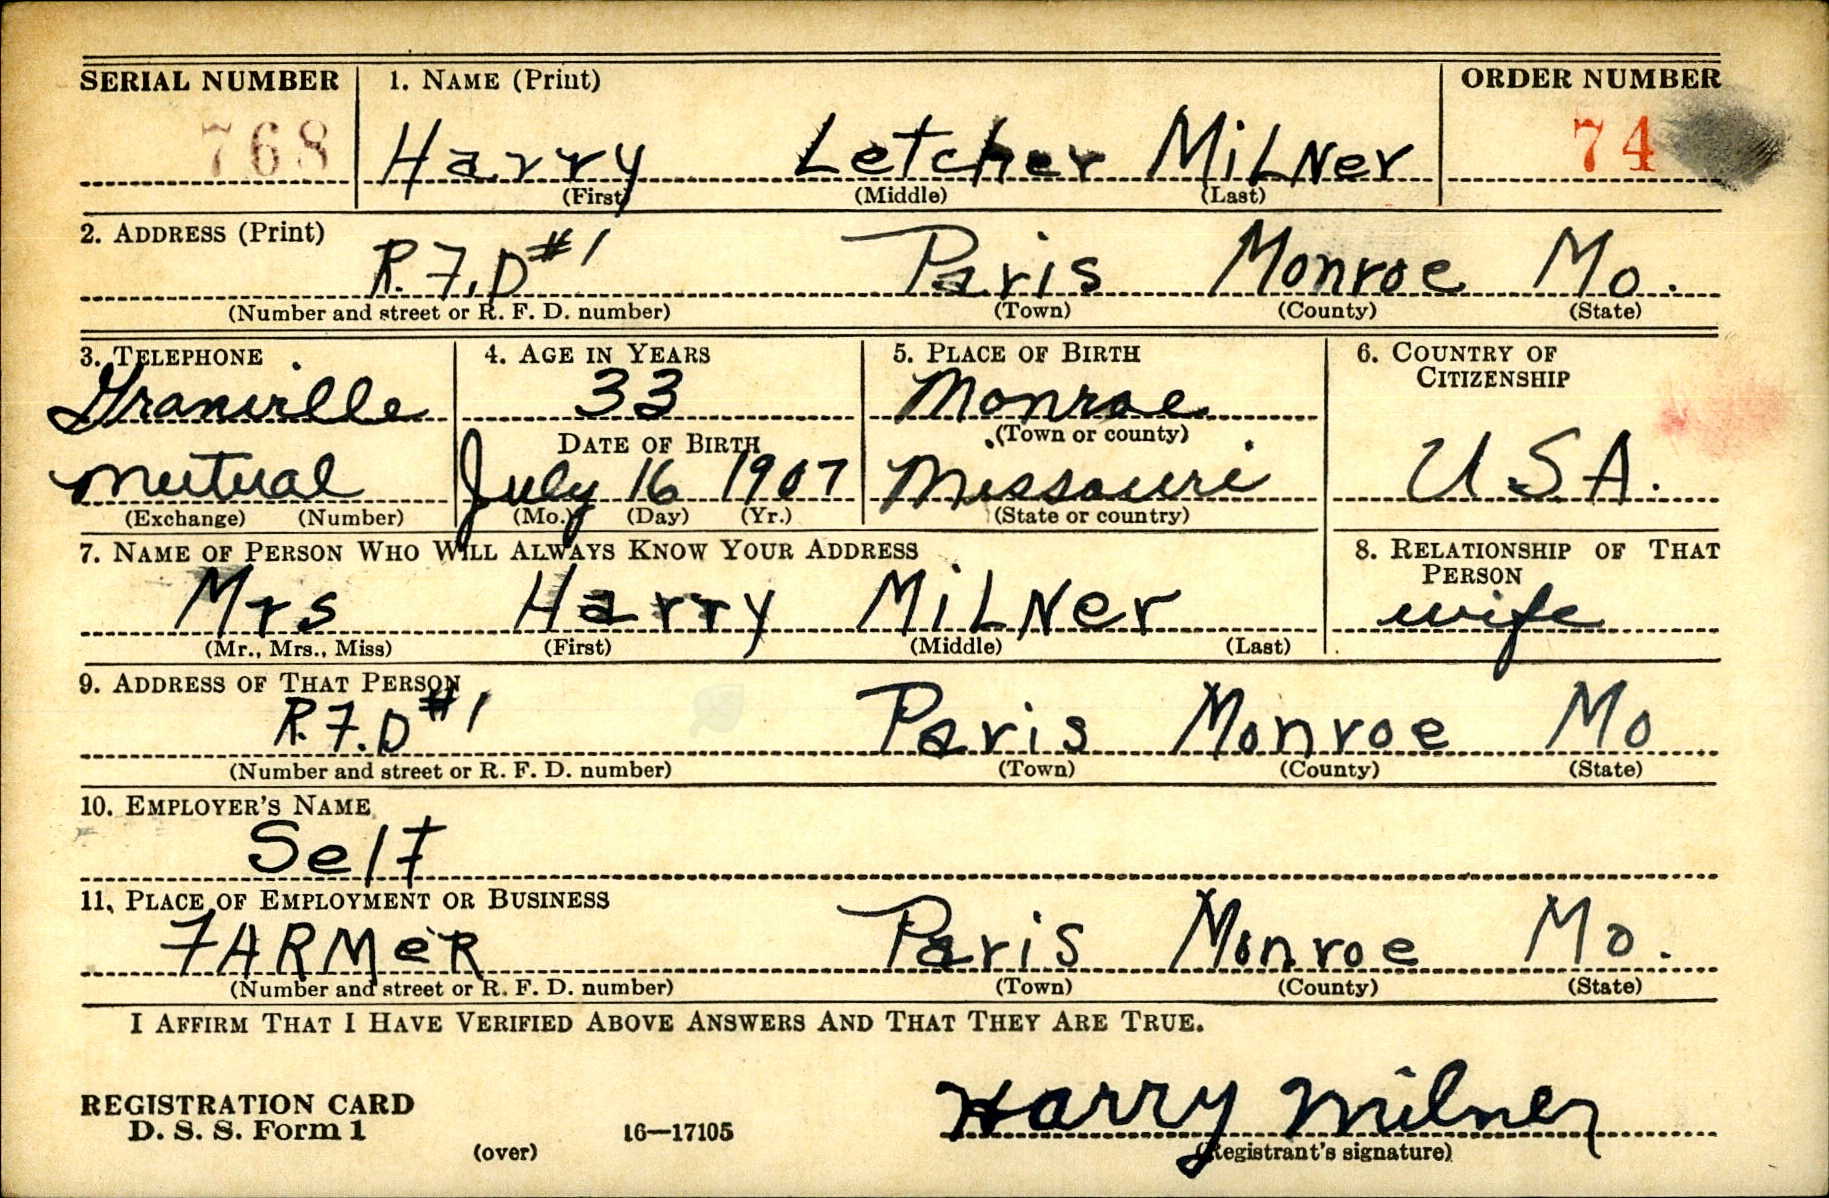 SERIAL NUMBER 1. NAME (Print) ORDER NUMBER
768 Harry Letcher MiLNer 74
(First) (Middle) (Last)
2. ADDRESS (Print)
R.F.D #1 Paris Monroe Mo.
(Number and street or R. F. D. number) (Town) (County) (State)
3. TELEPHONE 4. AGE IN YEARS 5. PLACE OF BIRTH 6. COUNTRY OF
CITIZENSHIP
Granville 33 Monroe
DATE OF BIRTH (Town or county)
mutual July 16 1907 Missouri U.S.A.
(Exchange) (Number) (Mo.) (Day) (Yr.) (State or country)
7. NAME OF PERSON WHO WILL ALWAYS KNOW YOUR ADDRESS 8. RELATIONSHIP OF THAT
PERSON
Mrs Harry MiLNer wife
(Mr., Mrs., Miss) (First) (Middle) (Last)
9. ADDRESS OF THAT PERSON
R.F.D #1 Paris Monroe Mo
(Number and street or R. F. D. number) (Town) (County) (State)
10. EMPLOYER'S NAME
Self
11. PLACE OF EMPLOYMENT OR BUSINESS
FARMeR Paris Monroe Mo.
(Number and street or R. F. D. number) (Town) (County) (State)
I AFFIRM THAT I HAVE VERIFIED ABOVE ANSWERS AND THAT THEY ARE TRUE.
Harry Milner
REGISTRATION CARD
D. S. S. Form 1
(over) 16—17105 (Registrant's signature)